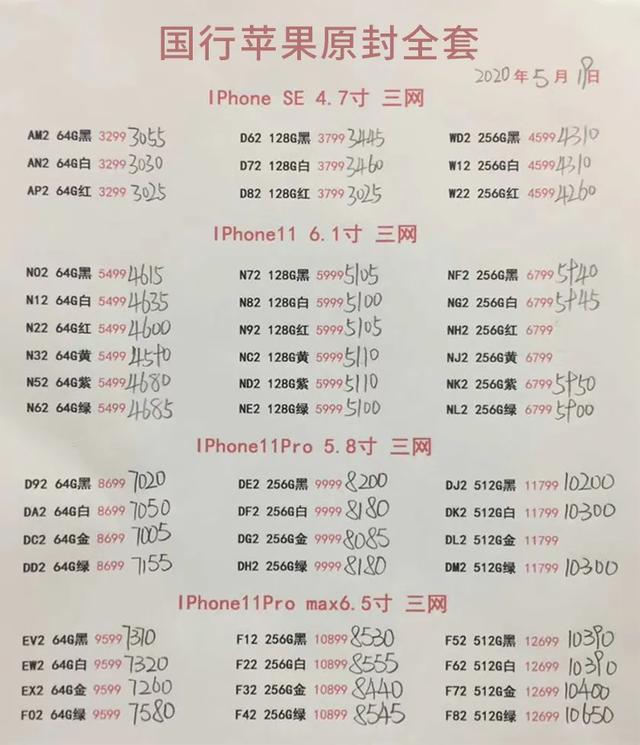 国行苹果原封全套
2020年5月19日
IPhone SE 4.7寸 三网
AM2 64G黑 3299 3055 D62 128G黑 3799 3445 WD2 256G黑 4599 4310
AN2 64G白 3299 3030 D72 128G白 3799 3460 W12 256G白 4599 4310
AP2 64G红 3299 3025 D82 128G红 3799 3025 W22 256G红 4599 4260
IPhone11 6.1寸 三网
N02 64G黑 5499 4615 N72 128G黑 5999 5105 NF2 256G黑 6799 5940
N12 64G白 5499 4635 N82 128G白 5999 5100 NG2 256G白 6799 5945
N22 64G红 5499 4600 N92 128G红 5999 5105 NH2 256G红 6799
N32 64G黄 5499 4590 NC2 128G黄 5999 5110 NJ2 256G黄 6799
N52 64G紫 5499 4680 ND2 128G紫 5999 5110 NK2 256G紫 6799 5950
N62 64G绿 5499 4685 NE2 128G绿 5999 5100 NL2 256G绿 6799 5900
IPhone11Pro 5.8寸 三网
D92 64G黑 8699 7020 DE2 256G黑 9999 8200 DJ2 512G黑 11799 10200
DA2 64G白 8699 7050 DF2 256G白 9999 8180 DK2 512G白 11799 10300
DC2 64G金 8699 7005 DG2 256G金 9999 8085 DL2 512G金 11799
DD2 64G绿 8699 7155 DH2 256G绿 9999 8180 DM2 512G绿 11799 10300
IPhone11Pro max6.5寸 三网
EV2 64G黑 9599 7310 F12 256G黑 10899 8530 F52 512G黑 12699 10390
EW2 64G白 9599 7320 F22 256G白 10899 8555 F62 512G白 12699 10390
EX2 64G金 9599 7260 F32 256G金 10899 8440 F72 512G金 12699 10400
F02 64G绿 9599 7580 F42 256G绿 10899 8545 F82 512G绿 12699 10650